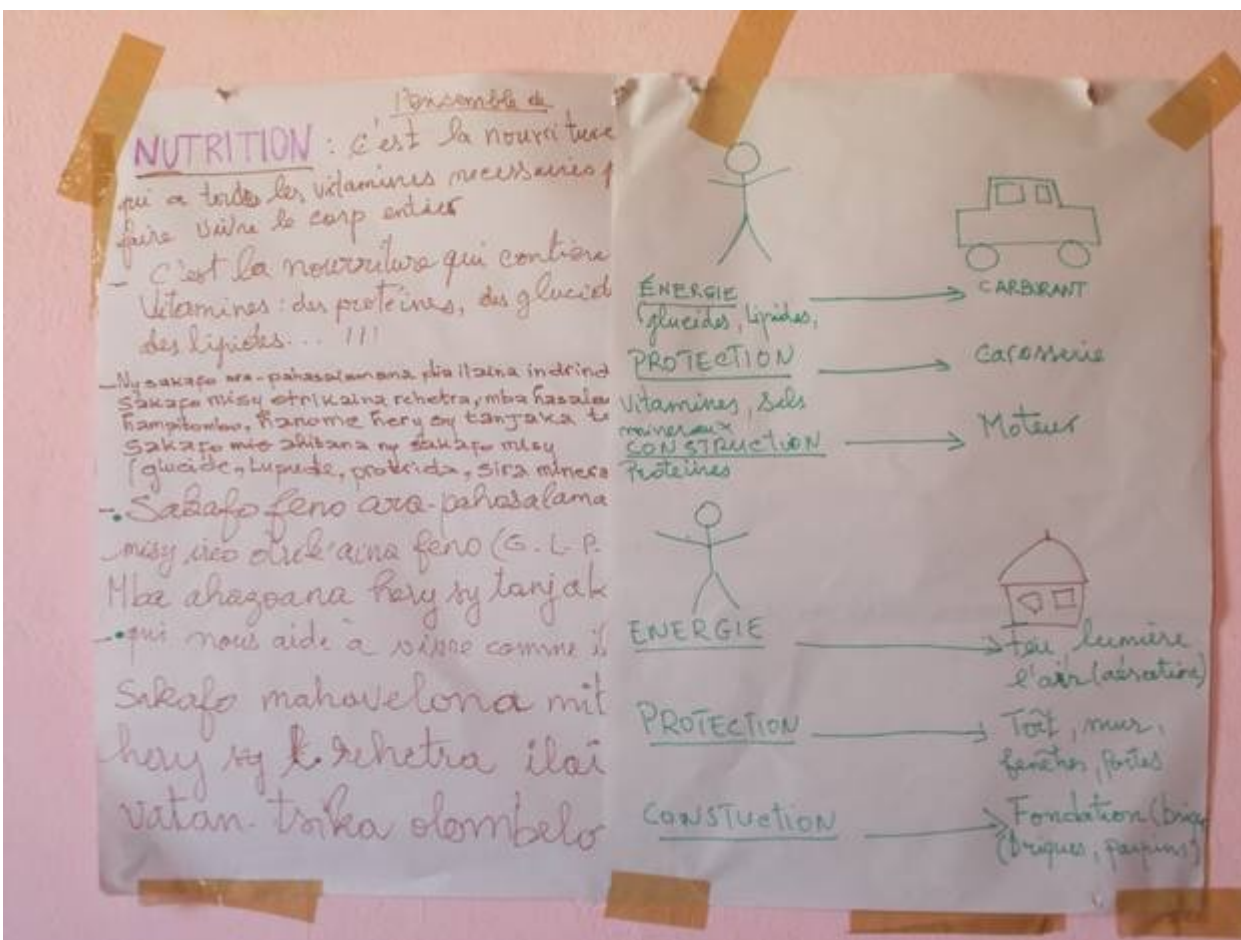 l'ensemble de
NUTRITION : c'est la nourriture
qui a toutes les vitamines necessaires p
faire vivre le corp entier
- C'est la nourriture qui contien
Vitamines : des proteines, des glucid
des lipides... !!!
- Ny sakafo ara-pahasalamana dia ilaina indrind
Sakafo misy otrikaina rehetra, mba hasala
hampitombo, hanome hery sy tanjaka t
Sakafo ny sakafo misy
(glucide, Lupide, protida, sira minera
- Sakafo feno ara-pahasalama
misy ireo feno (G.L.P.
Mba ahazoana hery sy tanjak
- qui nous aide à vivre comme il
Sakafo mahavelona mit
hery sy rehetra ilai
vatan-tsika olombelo
ÉNERGIE → CARBURANT
(glucides, Lipides,
PROTECTION → Carosserie
Vitamines, Sels
mineraux
CONSTRUCTION → Moteur
Protéines
ENERGIE → feu, lumière
l'air (aération)
PROTECTION → Toît, mur,
fenêtres, portes
CONSTUCTION → Fondation (briq
(Briques, parpins)